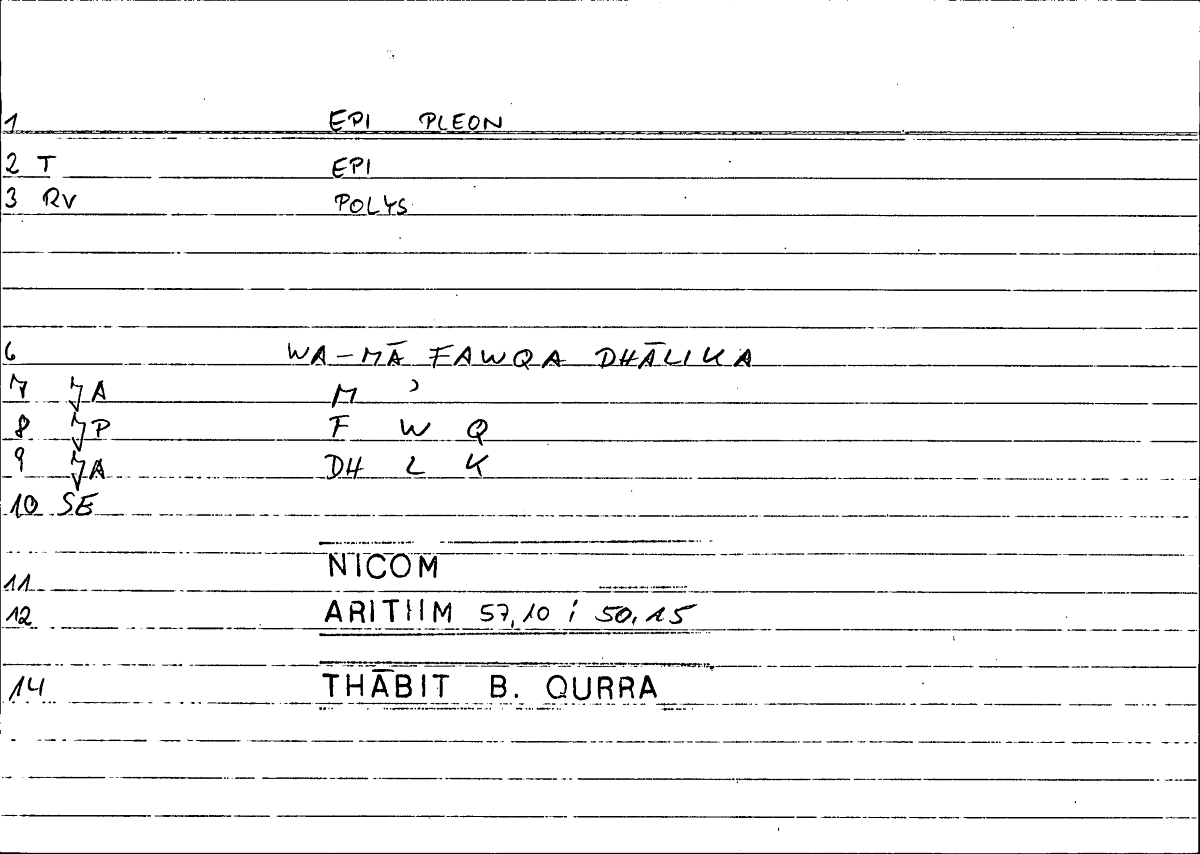 1 EPI PLEON
2 T EPI
3 RV POLYS
6 WA-MĀ FAWQA DHĀLIKA
7 A M ʾ
8 P F W Q
9 A DH L K
10 SE
11 NICOM
12 ARITHM 57,10 ; 50,15
14 THĀBIT B. QURRA